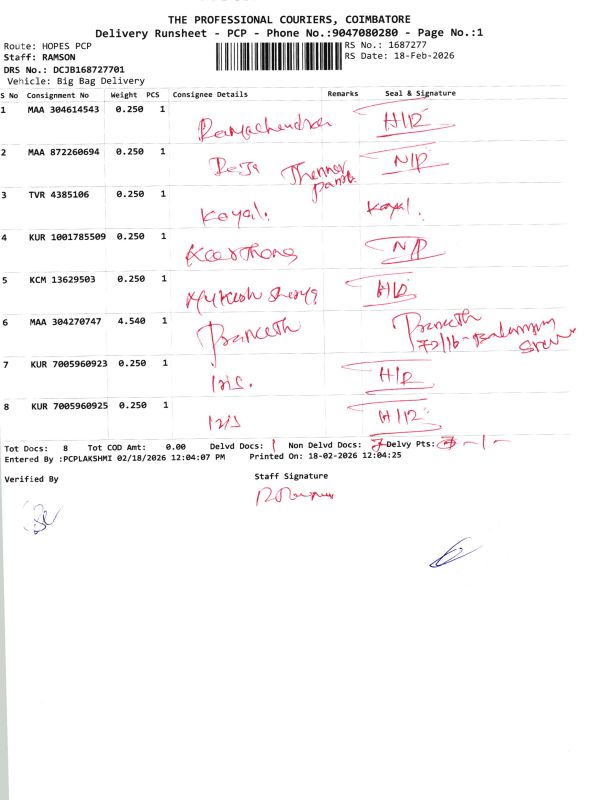 THE PROFESSIONAL COURIERS, COIMBATORE
Delivery Runsheet - PCP - Phone No.:9047080280 - Page No.:1
Route: HOPES PCP RS No.: 1687277
Staff: RAMSON RS Date: 18-Feb-2026
DRS No.: DCJB168727701
Vehicle: Big Bag Delivery
S No Consignment No Weight PCS Consignee Details Remarks Seal & Signature
1 MAA 304614543 0.250 1 Ramachendran
2 MAA 872260694 0.250 1 N/P
3 TVR 4385106 0.250 1 Koyal. Koyal.
4 KUR 1001785509 0.250 1 Keerthana N/P
5 KCM 13629503 0.250 1
6 MAA 304270747 4.540 1 Praneeth Praneeth
7 KUR 7005960923 0.250 1 Iris.
8 KUR 7005960925 0.250 1 Iris
Tot Docs: 8 Tot COD Amt: 0.00 Delvd Docs: 1 Non Delvd Docs: 7 Delvy Pts: -1-
Entered By :PCPLAKSHMI 02/18/2026 12:04:07 PM Printed On: 18-02-2026 12:04:25
Verified By Staff Signature